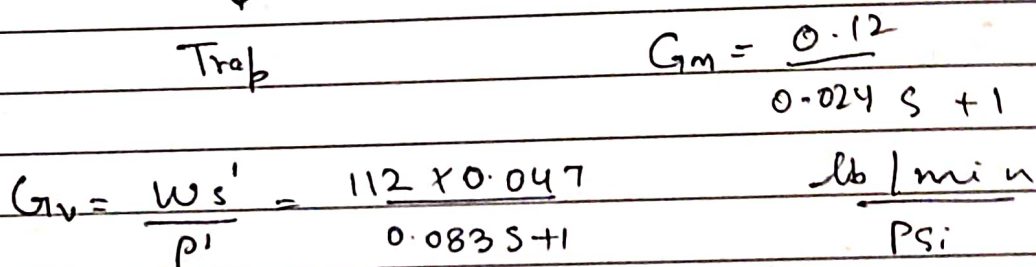 Trap
Gm = 0.12 / 0.024 S + 1
Gv = Ws' / P' = 112 x 0.047 / 0.083 S+1 lb / min / Psi